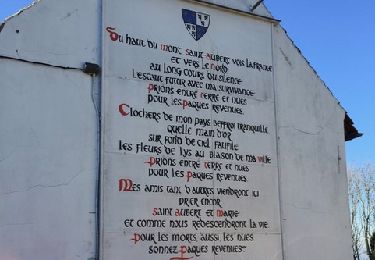 Du haut du mont Saint Aubert vois la France
et vers le Nord
au long cours du silence
l'Escaut
Prions entre terre et nues
pour les Pâques revenues.
Clochers de mon pays beffroi tranquille
quelle main d'or
sur fond de ciel faufile
les fleurs de lys au blason de ma ville
Prions entre terre et nues
pour les Pâques revenues.
Mes amis tant d'autres viendront ici
prier encor
Saint Aubert et Marie
et comme nous redescendront la vie
pour les morts aussi, les nues
sonnez Pâques revenues